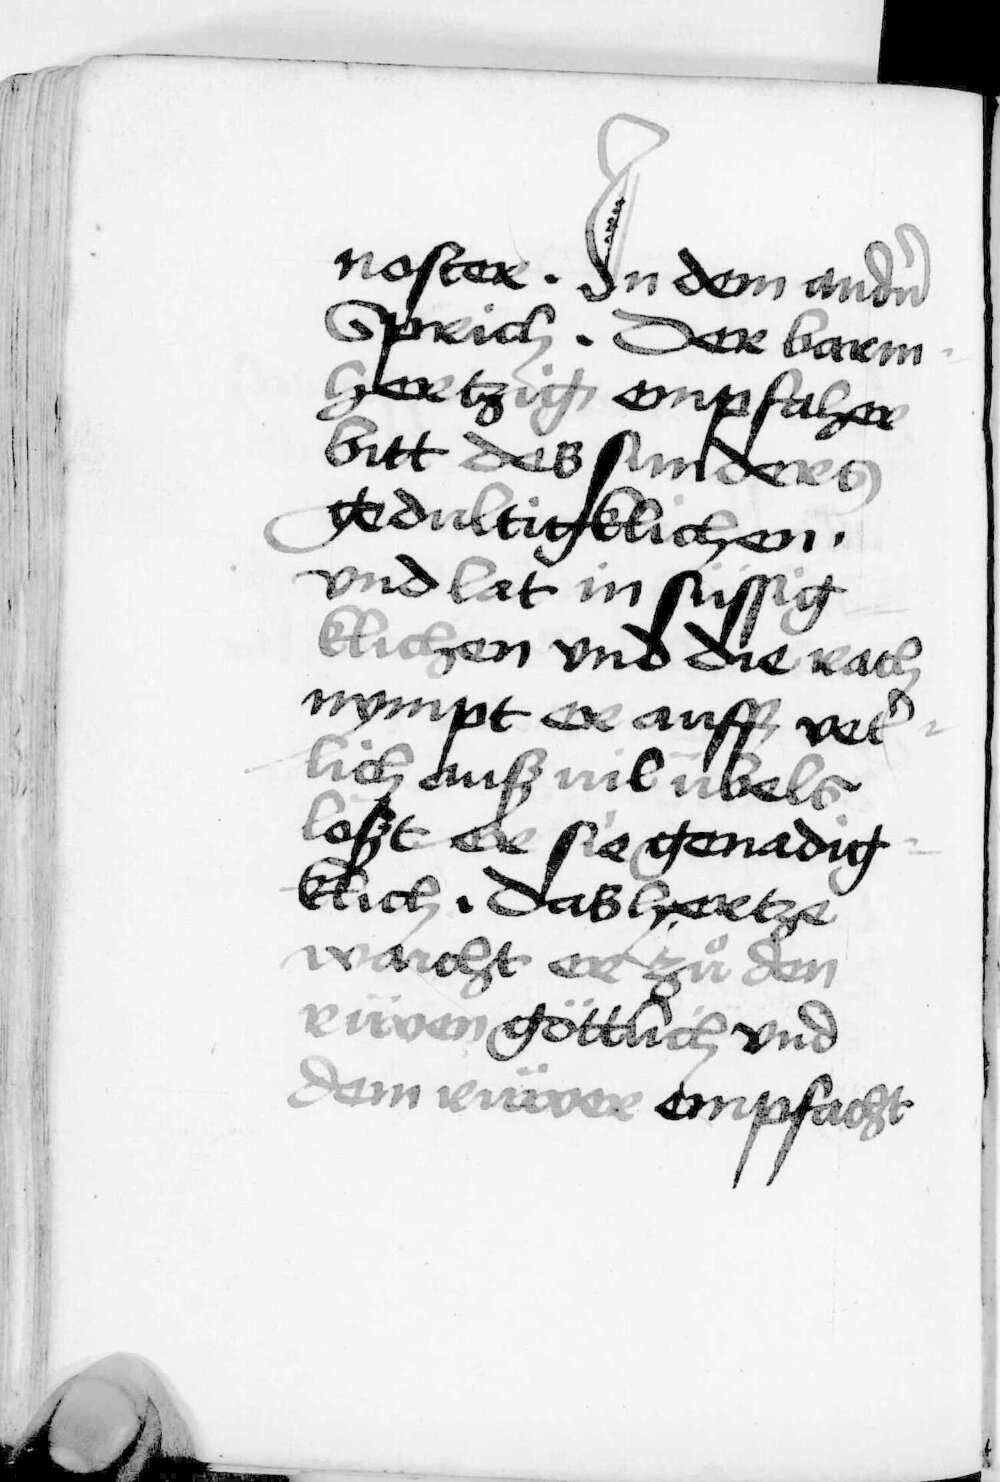 noster . In dem andrn
Sprich . Der barm-
hertzig empfaher
bitt des sunders
gedultigklichen .
vnd lat in süssig
klichen vnd die rach
nympt er auff vet-
lich auß vil übels
loßt er sie genadig-
klich . Das hertze
waicht er zů den
rüwen göttlich vnd
dem rüwer empfacht